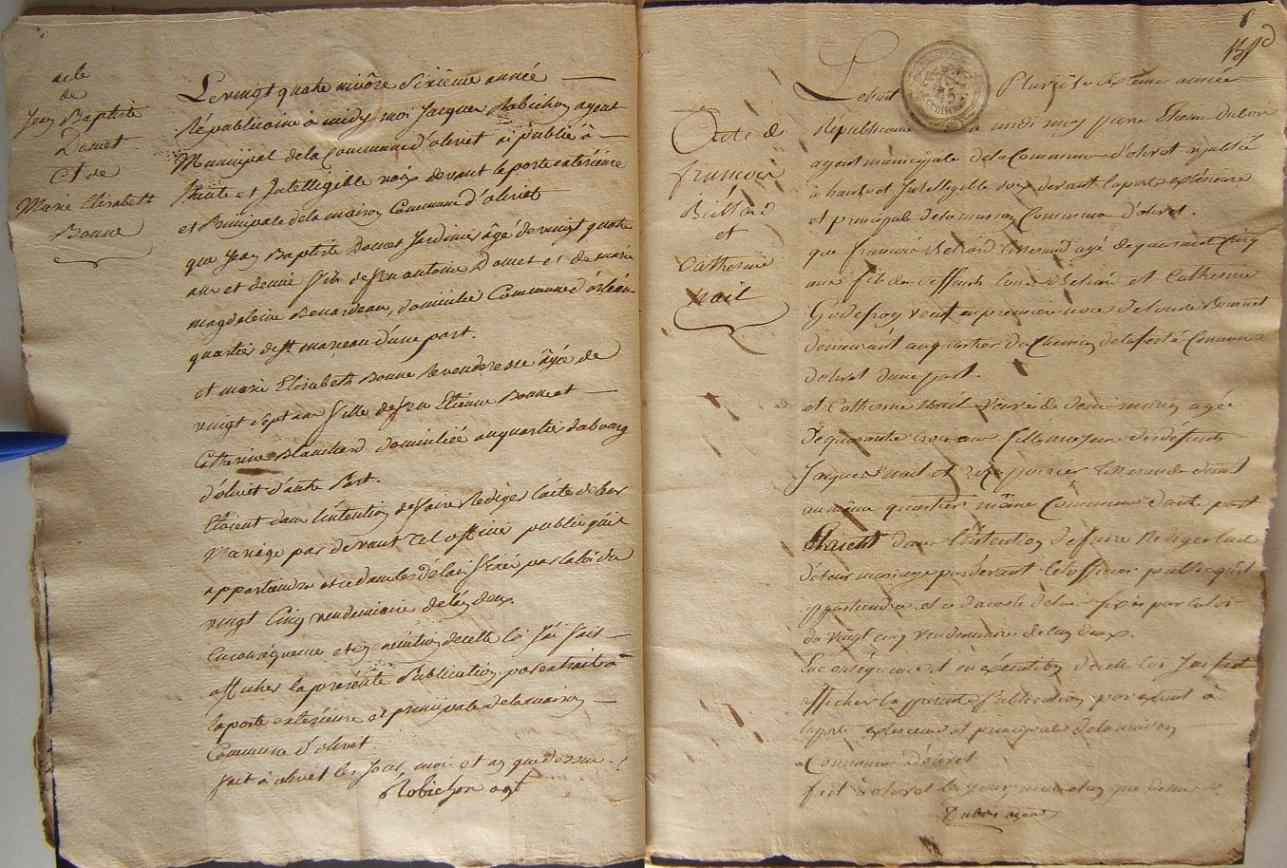 acte
de
Jean Baptiste
Domet
Et de
Marie Elisabeth
Bonne
Le vingt quatre nivôse sixième année
Républicaine à midy moi Jacques Robichon agent
Municipal de la Commune d'olivet ai publié à
haute et Intelligible voix devant la porte extérieure
et Principale de la maison Commune d'olivet
que Jean Baptiste Domet Jardinier âgé de vingt quatre
ans et demie fils de feu antoine Domet et de marie
magdeleine Benardeau, domicilié Commune d'orléans
quartier de St marceau d'une part.
et marie Elisabeth Bonne Revenderesse âgée de
vingt sept ans fille de feu Etienne Bonne et
Catherine Blanchard domiciliée au quartier du bourg
d'olivet d'autre Part.
Etoient dans l'intention de faire Rediger l'acte de leur
Mariage par devant tel officier public qu'il
appartiendra et ce dans les délais fixés par la loi du
vingt Cinq vendemiaire de l'an deux.
En conséquence et en exécution de celle ci J'ai fait
afficher la présente Publication par extrait à
la porte extérieure et principale de la maison
Commune d'olivet
fait à olivet les Jour, mois et an que dessus
Robichon agt
6
Acte de
françois
et
Catherine
nail
Le huit Pluviôse sixième année
Republicaine à midi moy pierre Dubois
agent municipale de la Commune d'olivet ai publié
à haute et Intelligible voix devant la porte extérieure
et principale de la maison Commune d'olivet.
que françois âgé de quarante cinq
ans fils des deffunts Louis et Catherine
Godefroy veuf en premiere noce de
demeurant au quartier du Chemin de la ferté Commune
d'olivet d'une part.
et Catherine nail veuve de agée
de quarante ans fille majeure des défunts
Jacques nail et poirier
au même quartier même Commune d'autre part
Etaient dans l'intention de faire Rediger l'acte
de leur mariage par devant tel officier public qu'il
appartiendra et ce dans le delai fixé par la loi
du vingt cinq vendemiaire de l'an deux.
En conséquence et en exécution de celle ci J'ai fait
afficher la presente Publication par extrait à
la porte exterieure et principale de la maison
Commune d'olivet
fait à olivet les jour mois et an que dessus
Dubois agent